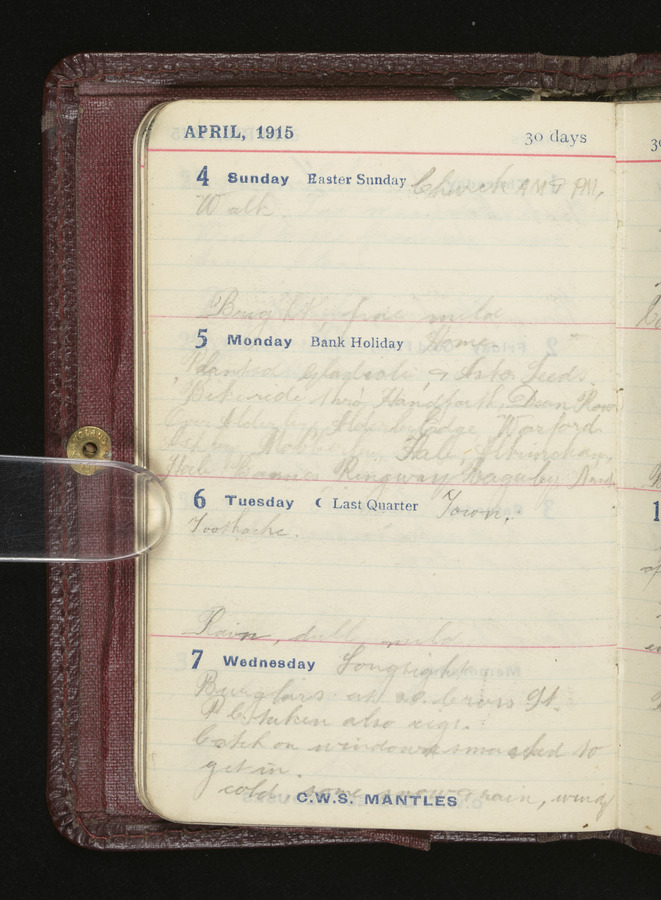 APRIL, 1915 30 days
4 Sunday Easter Sunday Church AM & PM,
Walk.
Bright, fine mild
5 Monday Bank Holiday Home.
Planted Gladioli & Asto Seeds.
Bike ride thro Handforth, Dean Row
Alderley Edge, Warford
Mobberley, Hale, Altrincham,
Hale Barnes Ringway Baguley
6 Tuesday ☾ Last Quarter Town.
Toothache.
Rain, dull, mild
7 Wednesday Longsight
Burglars at St.
taken also cigs.
Catch on window smashed to
get in.
cold some snow & rain, wind
C.W.S. MANTLES
3
1